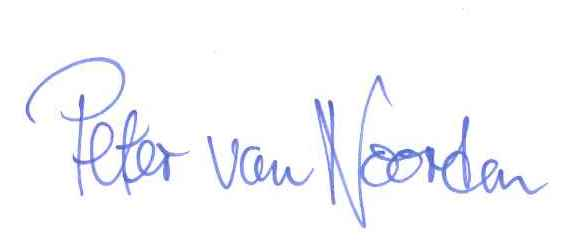 Peter van Noorden